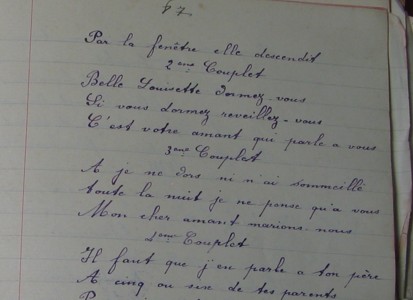 67
Par la fenêtre elle descendit
2ème Couplet
Belle Louisette dormez-vous
Si vous dormez reveillez-vous
C'est votre amant qui parle a vous
3eme Couplet
A je ne dors ni n'ai sommeillé
toute la nuit je ne pense qu'a vous
Mon cher amant marions-nous
4eme Couplet
Il faut que j'en parle a ton père
A cinq ou six de tes parents